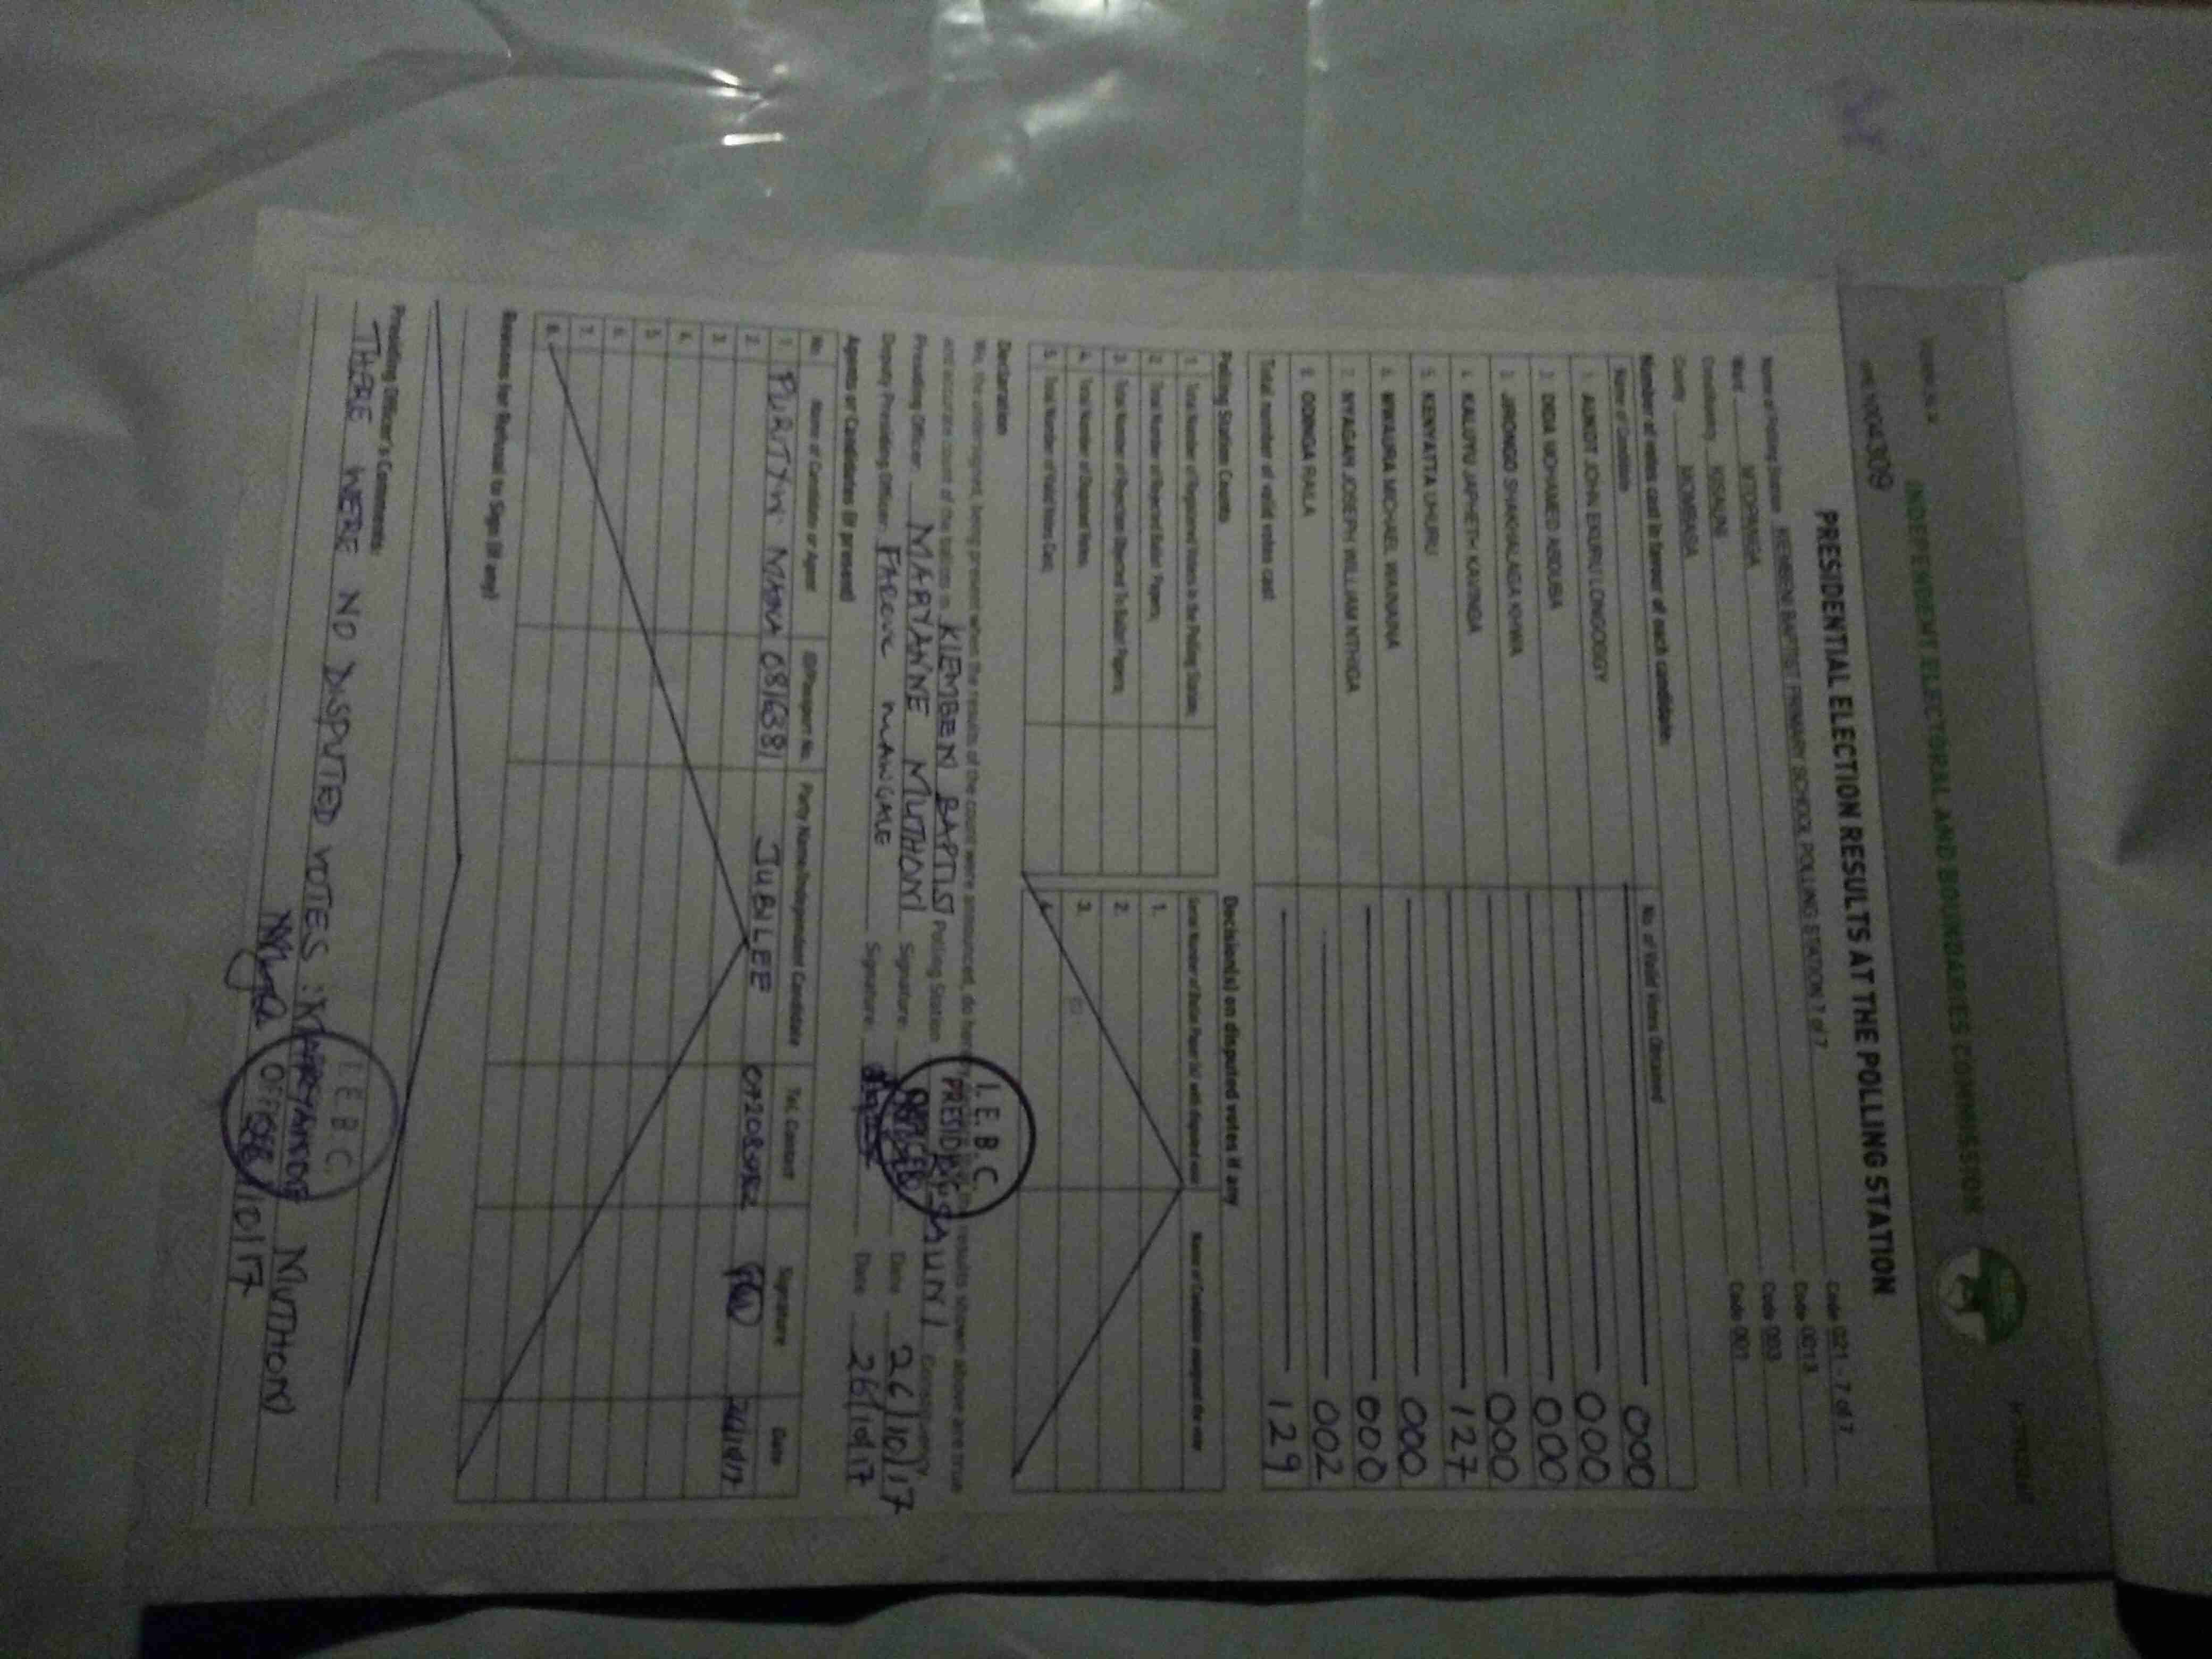 INDEPENDENT ELECTORAL AND BOUNDARIES COMMISSION
PRESIDENTIAL ELECTION RESULTS AT THE POLLING STATION
Name of Polling Station KIEMBENI BAPTIST PRIMARY SCHOOL POLLING STATION 7 of 7 Code 021 - 7 of 7
Ward MTOPANGA Code 0013
Constituency KISAUNI Code 003
County MOMBASA Code 001
Number of votes cast in favour of each candidate:
Name of Candidate No. of Valid Votes Obtained
000
1. AUKOT JOHN EKURU LONGOGGY 000
2. DIDA MOHAMED ABDUBA 000
3. JIRONGO SHAKHALAGA KHWA 000
4. KALUYU JAPHETH KAVINGA 127
5. KENYATTA UHURU 000
6. MWAURA MICHAEL WAINAINA 000
7. NYAGAH JOSEPH WILLIAM NTHIGA 002
8. ODINGA RAILA 129
Total number of valid votes cast
Polling Station Counts Decision(s) on disputed votes if any
1. Total Number of Registered Voters in the Polling Station;
2. Total Number of Rejected Ballot Papers;
3. Total Number of Rejection Objected To Ballot Papers;
4. Total Number of Disputed Votes;
5. Total Number of Valid Votes Cast;
Serial Number of Ballot Paper (s) with disputed vote
1.
2.
3.
4.
Declaration
We, the undersigned, being present when the results of the count were announced, do hereby results shown above are true
and accurate count of the ballots in KIEMBENI BAPTIST Polling Station KISAUNI Constituency
Presiding Officer: MARYANNE MUTHONI Signature: Date 26/10/17
Deputy Presiding Officer: FAROUK MWANGALE Signature: Date 26/10/17
I.E.B.C.
PRESIDING
OFFICER
Agents or Candidates (if present)
No. Name of Candidate or Agent ID/Passport No. Party Name/Independent Candidate Tel. Contact Signature Date
1. JUBILEE
2.
3.
4.
5.
6.
7.
8.
Reasons for Refusal to Sign (if any)
Presiding Officer's Comments:
THERE WERE NO DISPUTED VOTES : MARYANNE MUTHONI
I.E.B.C.
OFFICER